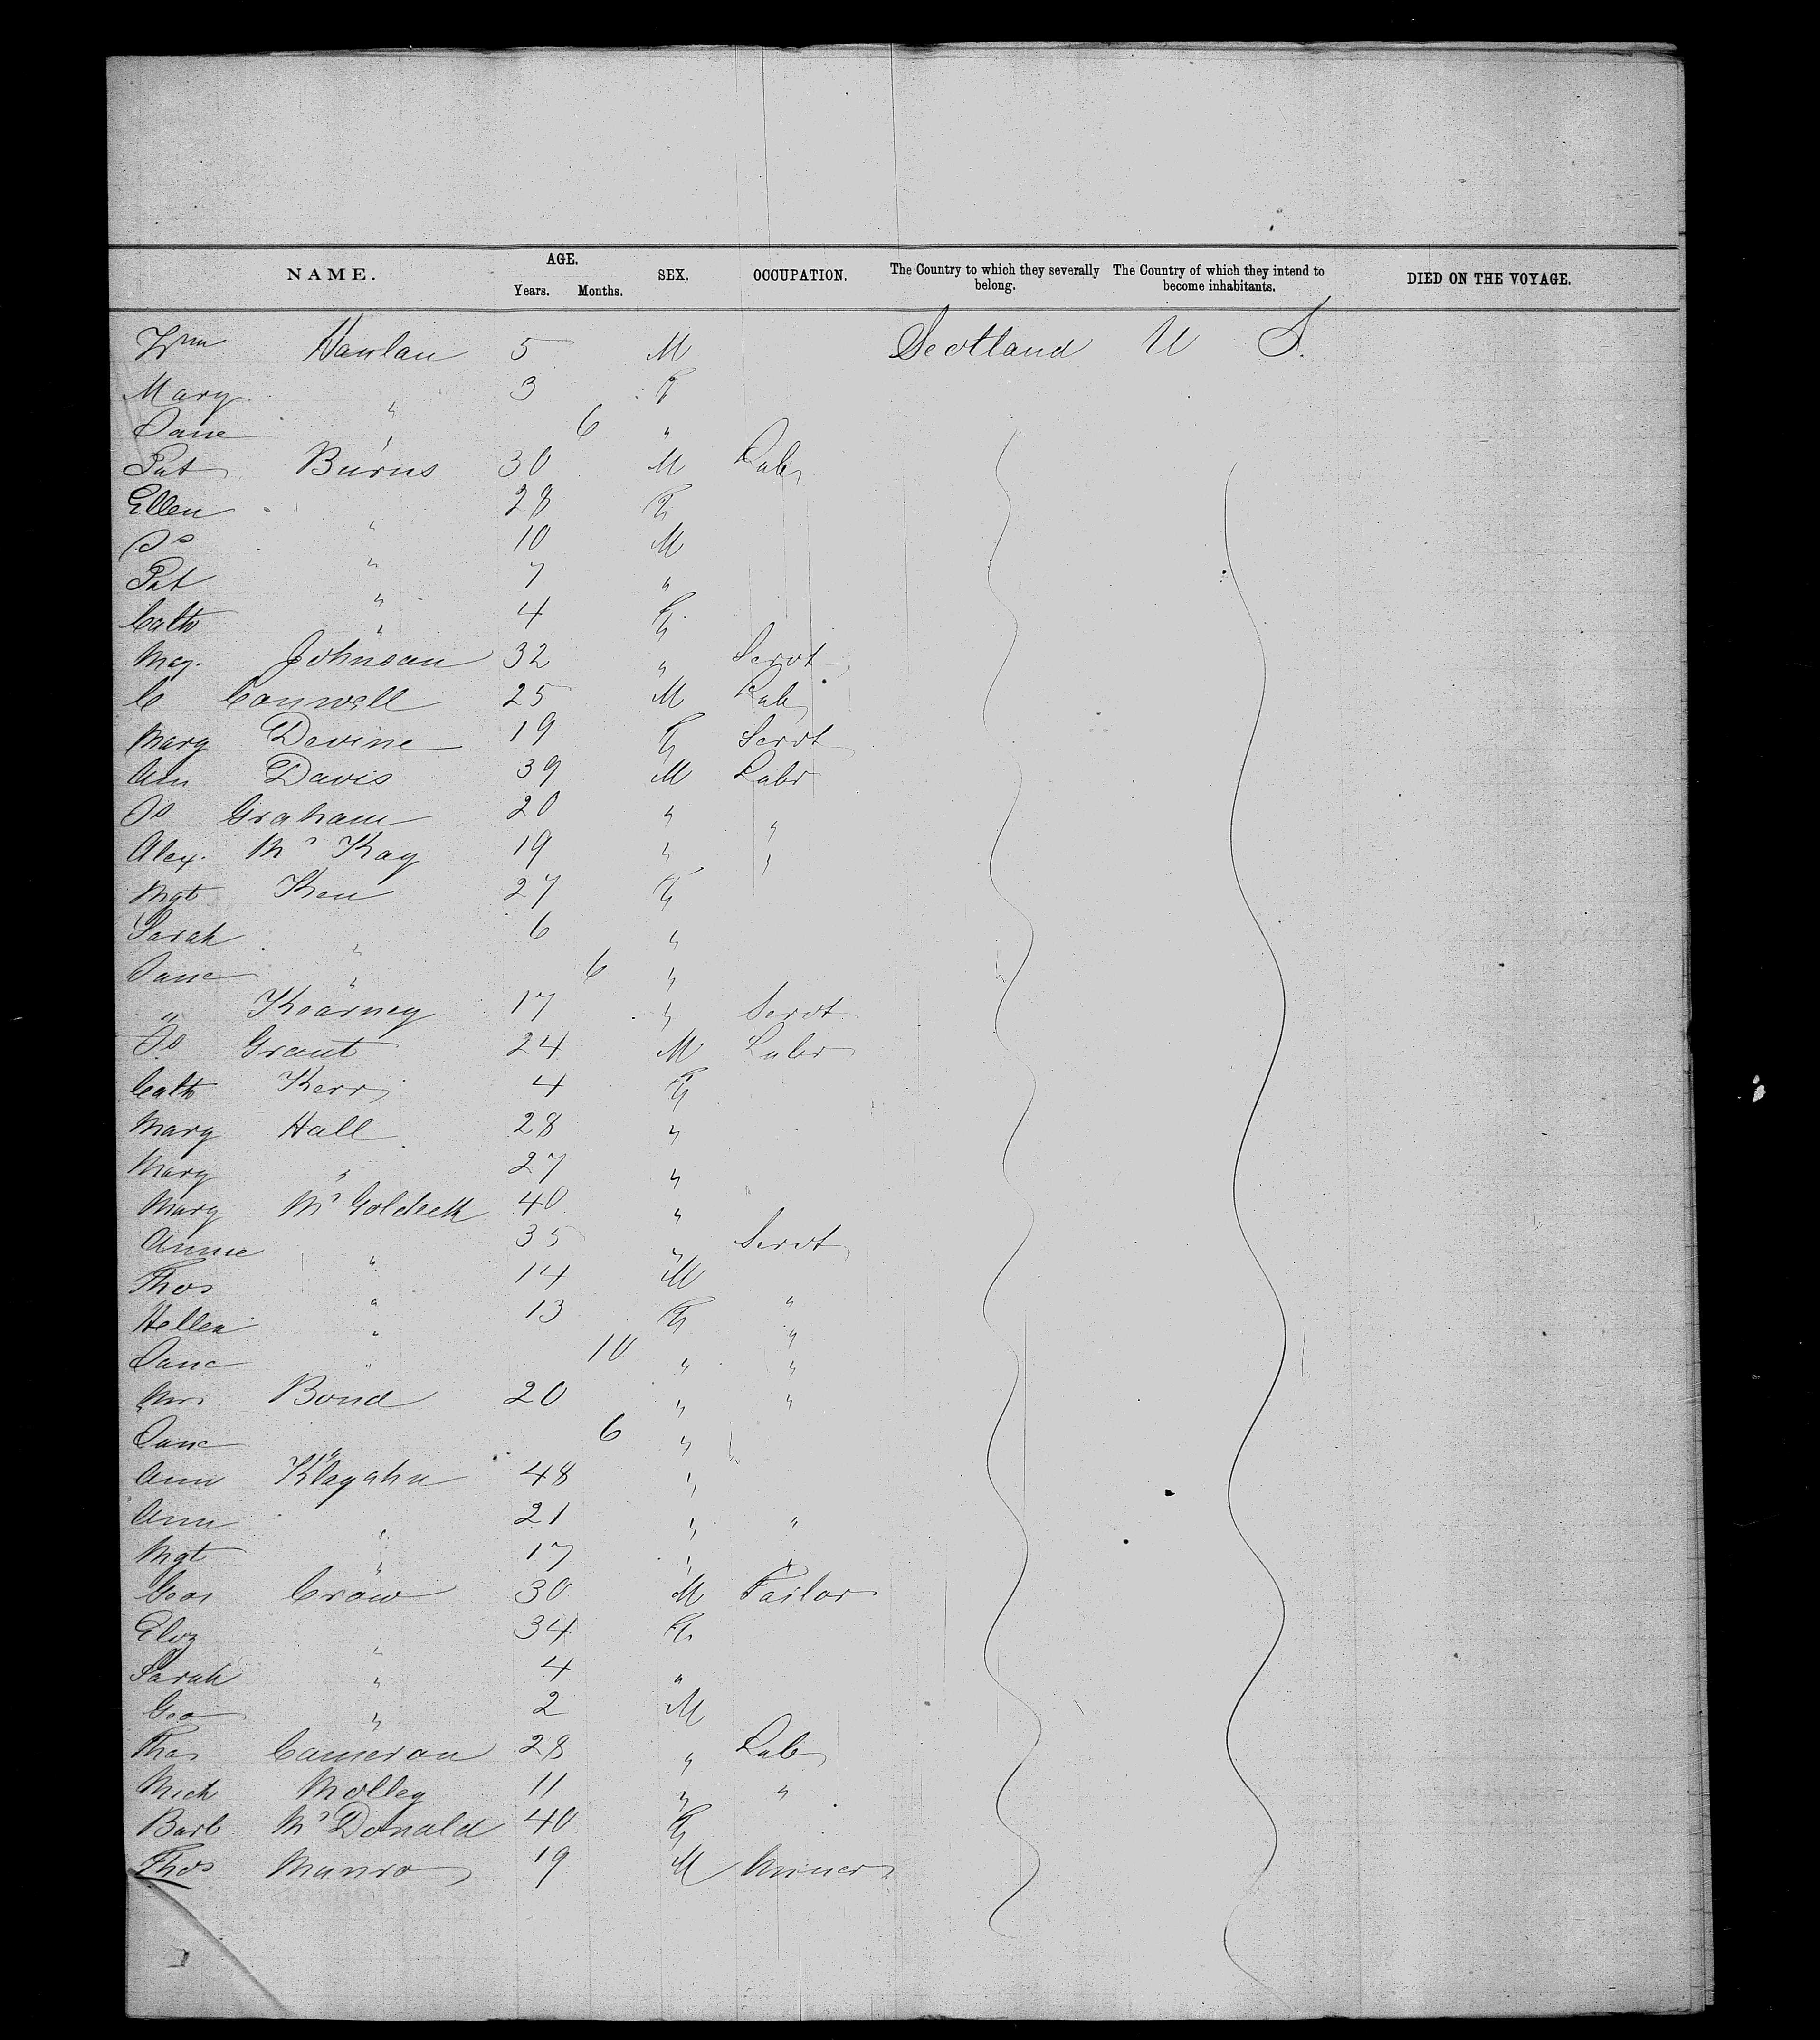 NAME. AGE. Years. Months. SEX. OCCUPATION. The Country to which they severally belong. The Country of which they intend to become inhabitants. DIED ON THE VOYAGE.
Wm Hanlan 5 M Scotland U S.
Mary " 3 F
Jane " 6 "
Pat Burns 30 M Lab
Ellen " 28 F
Js " 10 M
Pat " 7 "
Cath " 4 F
Mag. Johnson 32 " Servt
C Conwell 25 M Lab
Mary Devine 19 F Servt
Davis 39 M Labr
Js Graham 20 " "
Alex. Mc Kay 19 " "
Mgt 27 F
Sarah " 6 "
Jane " 6 "
" Kearney 17 " Servt
Js Grant 24 M Labr
Cath Kerr 4 F
Mary Hall 28 "
Mary " 27 "
Mary 40 "
Annie " 35 " Servt
Thos " 14 M "
Hellen " 13 F "
Jane " 10 " "
Mrs Bond 20 " "
Jane " 6 "
Ann 48 "
Ann " 21 " "
Mgt " 17 " "
Geo Crow 30 M Tailor
Eliz " 34 F
Sarah " 4 "
Geo " 2 M
Thos Cameron 28 " Lab
Mich Molley 11 " "
Barb Mc Donald 40 F
Thos Munro 19 M Miner